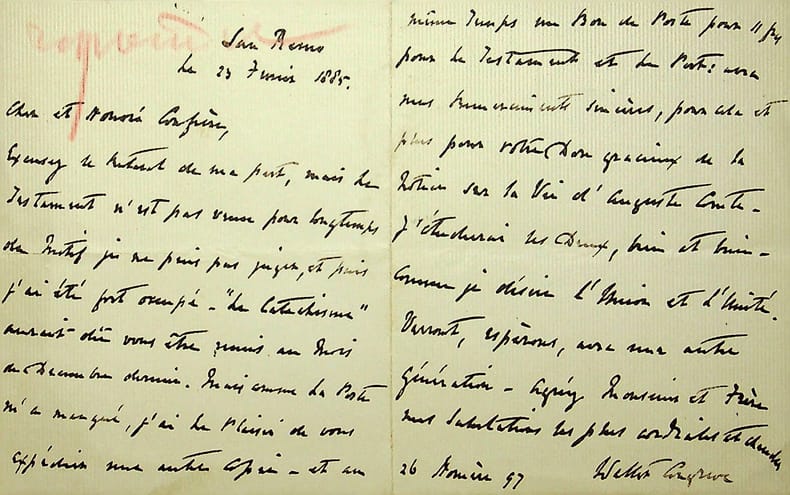 répondue
San Remo
Le 23 Fevrier 1885.
Cher et Honoré Confrère,
Excusez le retard de ma part, mais le
Testament n'est pas venu pour longtemps
du Motif je ne puis pas juger, et puis
j'ai été fort occupé - "Le Catechisme"
aurait dû vous être remis au Mois
de Decembre dernier. Mais comme la Poste
m'a manqué, j'ai le Plaisir de vous
expédier une autre Copie - et au
même Temps un Bon de Poste pour 11 frs
pour le Testament et le Port: avec
mes Remerciments sincères, pour cela et
plus pour votre Don gracieux de la
Notice sur la Vie d'Auguste Comte -
J'étudierai les Deux, bien et bien -
Comme je désire l'Union et l'Unité.
Varront, espérons, avec une autre
Génération - Agréez Monsieur et Frère
mes Salutations les plus cordiales et
26 Homère 97